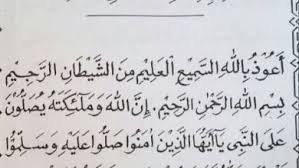 أَعُوذُ بِاللهِ السَّمِيعِ الْعَلِيمِ مِنَ الشَّيْطَانِ الرَّجِيمِ
بِسْمِ اللهِ الرَّحْمٰنِ الرَّحِيمِ. إِنَّ اللهَ وَمَلٰئِكَتَهُ يُصَلُّونَ
عَلَى النَّبِى يٰٓاَيُّهَا الَّذِينَ اٰمَنُوا صَلُّوا عَلَيْهِ وَسَلِّمُوا